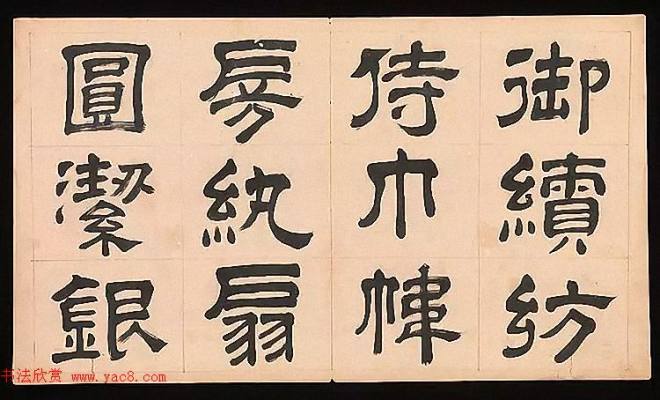 御續紡
侍巾幃
房紈扇
圓潔銀
书法欣赏 www.yac8.com